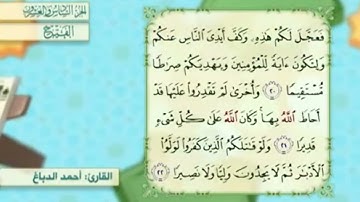 الجزء السادس والعشرون
الفتح
فَعَجَّلَ لَكُمْ هَٰذِهِۦ وَكَفَّ أَيْدِىَ ٱلنَّاسِ عَنكُمْ
وَلِتَكُونَ ءَايَةً لِّلْمُؤْمِنِينَ وَيَهْدِيَكُمْ صِرَٰطًا
مُّسْتَقِيمًا ٢٠ وَأُخْرَىٰ لَمْ تَقْدِرُوا۟ عَلَيْهَا قَدْ
أَحَاطَ ٱللَّهُ بِهَا ۚ وَكَانَ ٱللَّهُ عَلَىٰ كُلِّ شَىْءٍ
قَدِيرًا ٢١ وَلَوْ قَٰتَلَكُمُ ٱلَّذِينَ كَفَرُوا۟ لَوَلَّوُا۟
ٱلْأَدْبَٰرَ ثُمَّ لَا يَجِدُونَ وَلِيًّا وَلَا نَصِيرًا ٢٢
القارئ: أحمد الدباغ